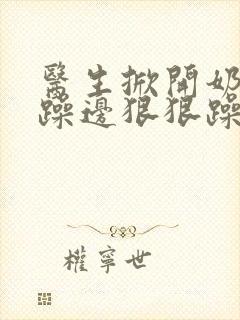 醫生掀開奶
躁邊狠狠躁
權寧世